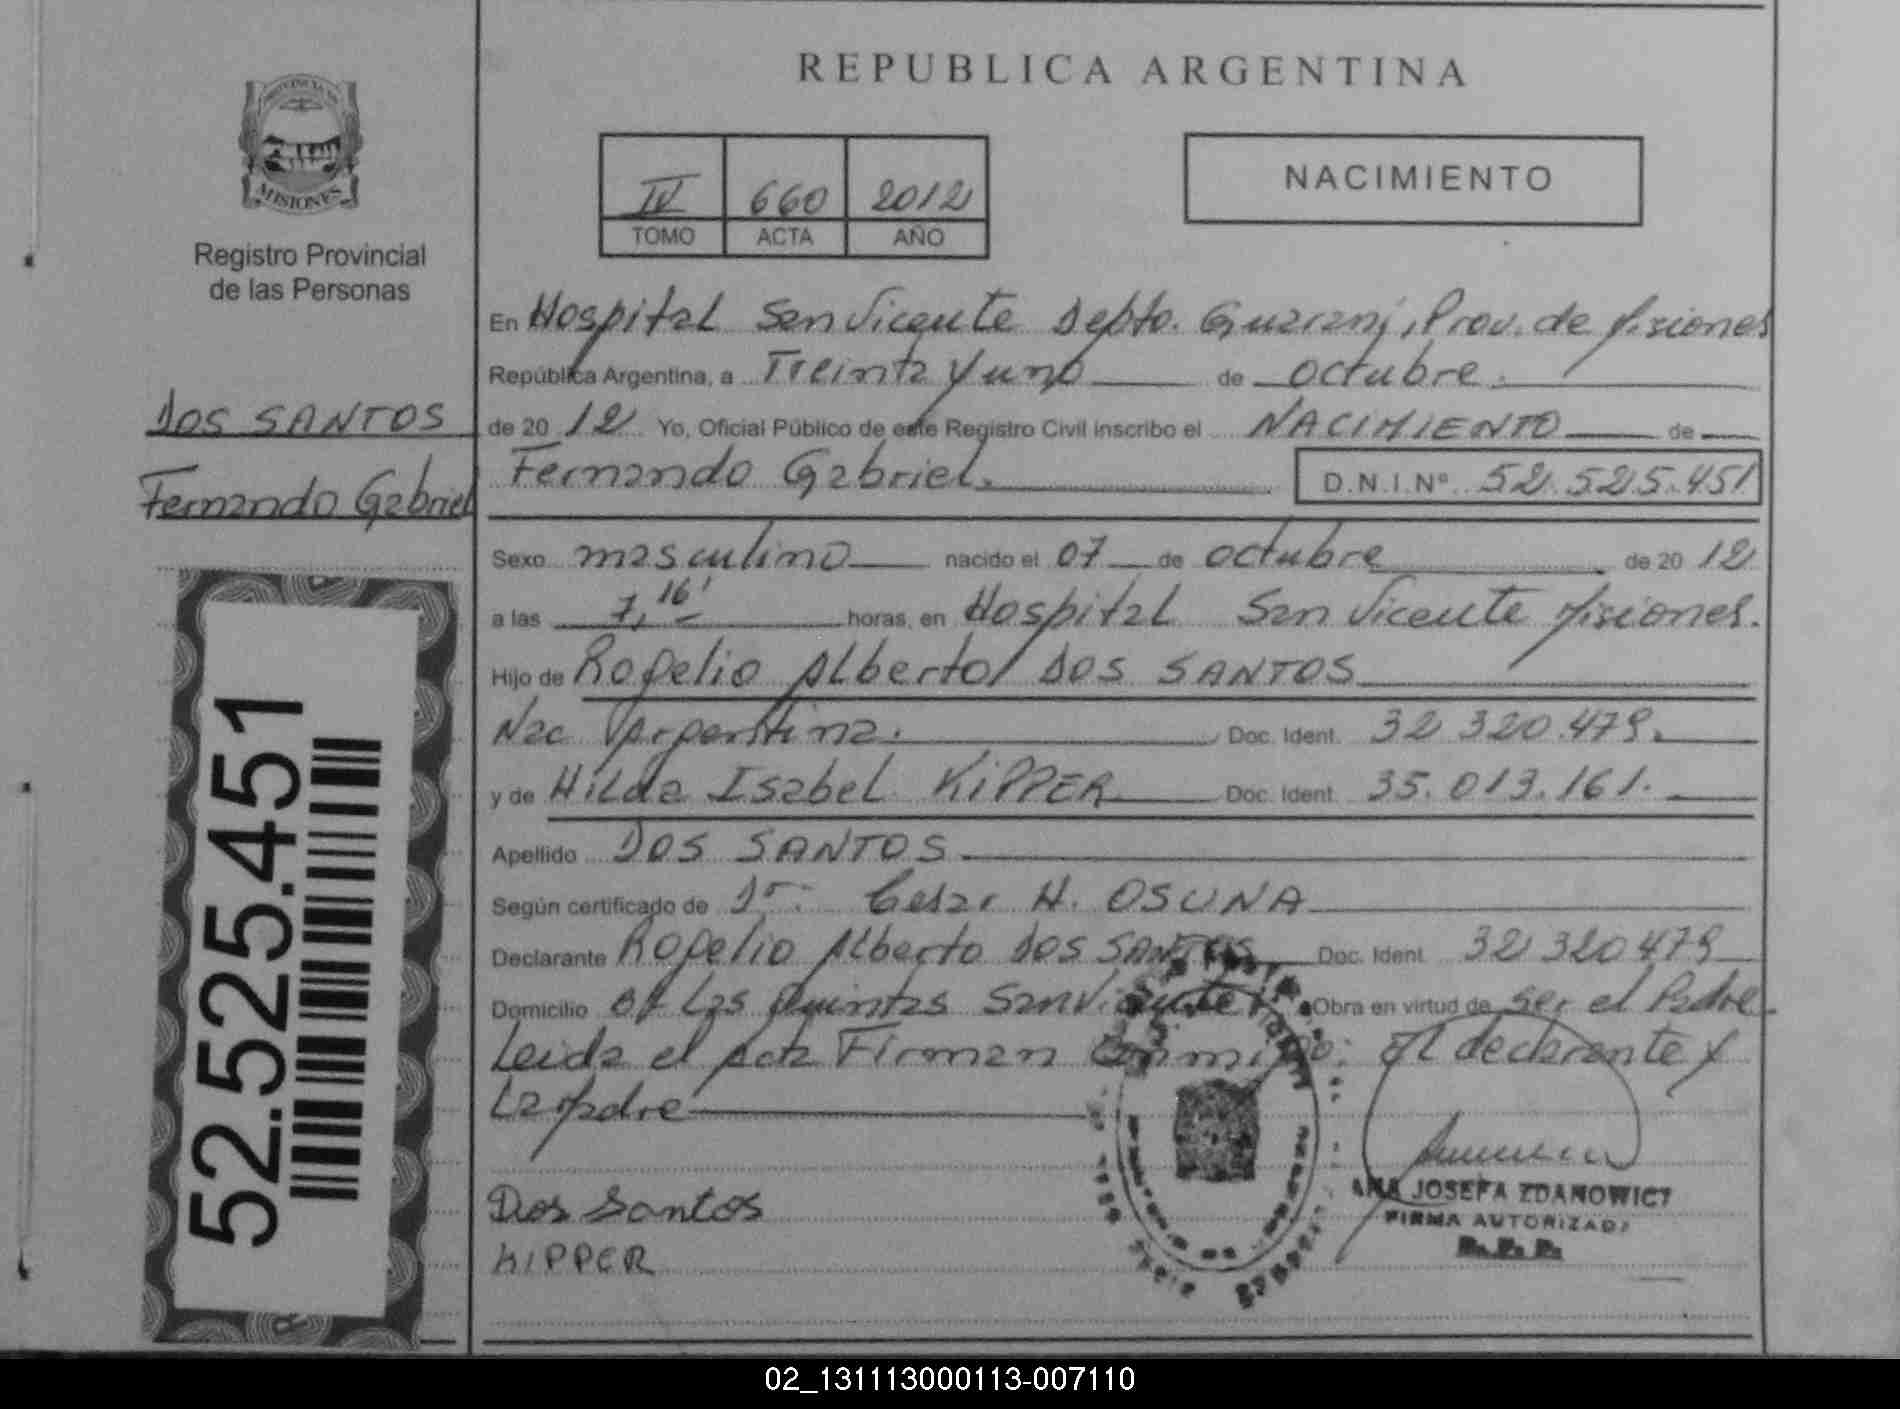 PROVINCIA DE
MISIONES
Registro Provincial
de las Personas
DOS SANTOS
Fernando Gabriel
52.525.451
REPUBLICA ARGENTINA
IV 660 2012
TOMO ACTA AÑO
NACIMIENTO
En Hospital San Vicente Depto. Guaraní, Prov. de Misiones
República Argentina, a Treinta y uno de octubre.
de 20 12 Yo, Oficial Público de este Registro Civil inscribo el NACIMIENTO de
Fernando Gabriel. D.N.I.Nº 52.525.451
Sexo masculino nacido el 07 de octubre de 20 12
a las 7,16' horas, en Hospital San Vicente Misiones.
Hijo de Rogelio Alberto DOS SANTOS
Nac Argentina. Doc. Ident. 32 320.479.
y de Hilda Isabel KIPPER Doc. Ident. 35.013.161.
Apellido DOS SANTOS
Según certificado de Dr. Cesar H. OSUNA
Declarante Rogelio Alberto DOS SANTOS Doc. Ident. 32 320479
Domicilio B° Las Quintas San Vicente Obra en virtud de ser el Padre.
Leida el acta Firman Conmigo: El declarante y
La Madre
Dos Santos
KIPPER
ANA JOSEFA ZDANOWICZ
FIRMA AUTORIZADA
R. P. P.
02_131113000113-007110